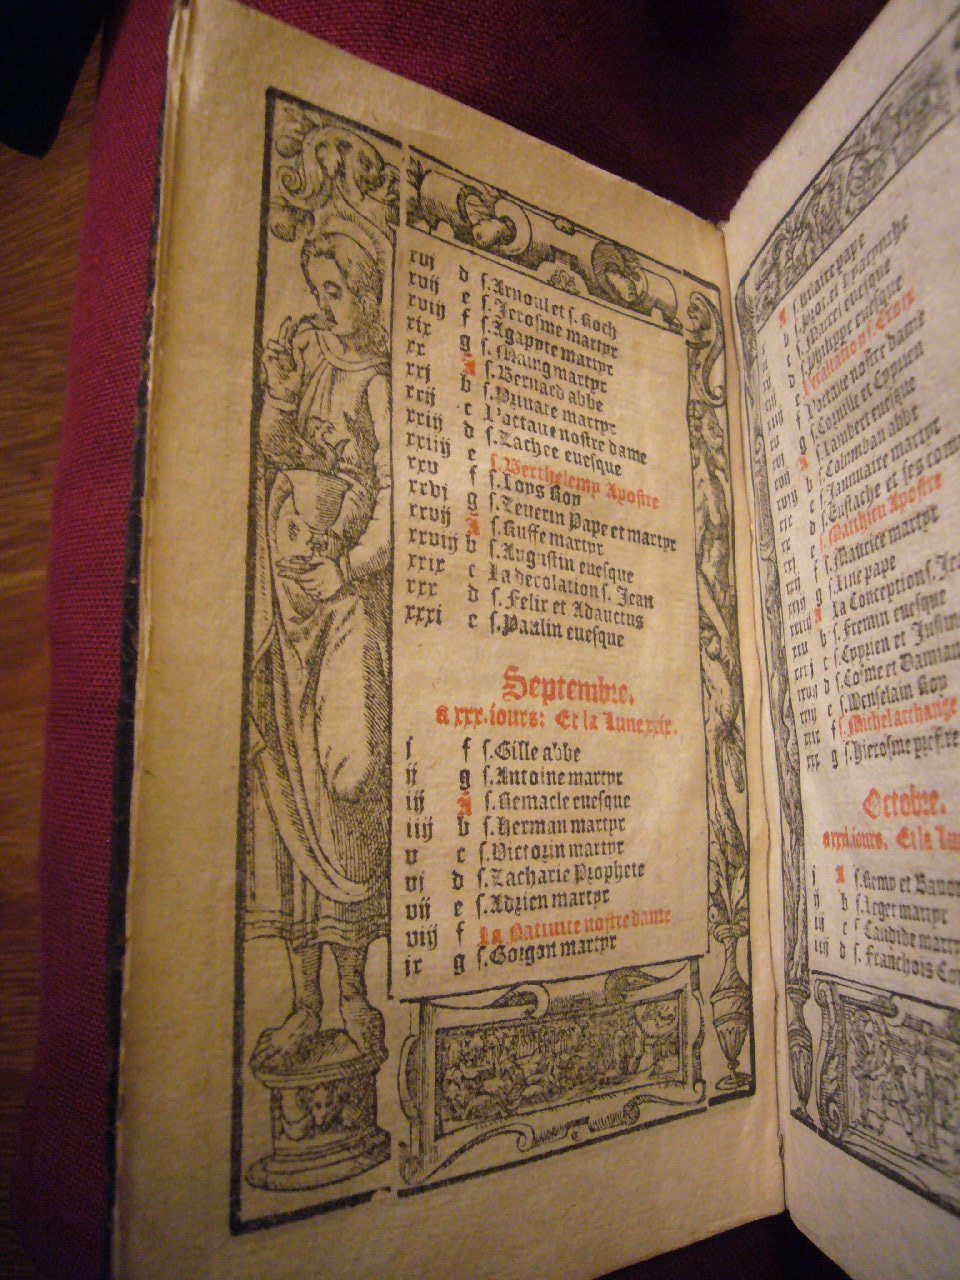 xvj d s. Arnoul et s. Roch
xvij e s. Jerosme martyr
xviij f s. Agapyte martyr
xix g s. Maing martyr
xx A s. Bernard abbe
xxj b s. Private martyr
xxij c l'octave nostre dame
xxiij d s. Zachee evesque
xxiiij e s. Berthelemy Apostre
xxv f s. Loys Roy
xxvj g s. Zeverin Pape et martyr
xxvij A s. Ruffe martyr
xxviij b s. Augustin evesque
xxix c la decolation s. Jean
xxx d s. Felix et Adauctus
xxxi e s. Paulin evesque
Septembre.
a xxx. iours: Et la Lune xxix.
j f s. Gille abbe
ij g s. Antoine martyr
iij A s. Remacle evesque
iiij b s. Herman martyr
v c s. Victorin martyr
vj d s. Zacharie Prophete
vij e s. Adrien martyr
viij f La Nativite nostre dame
ix g s. Gorgon martyr
s. Hilaire pape
s. Prot. et s.
s. Marcel evesque
s. Philippe evesque
l'exaltation s. Croix
l'octave nostre dame
s. Cornille et Cyprien
s. Lambert evesque
s. Colomban abbe
s. Januaire martyr
s. Eustache et ses
s. Matthieu Apostre
s. Maurice martyr
s. Line pape
la Conception s. Jea
s. Fremin evesque
s. Cyprien et Justin
s. Cosme et Damian
s. Wenselain Roy
s. Michel archange
xxx g s. Hierosme
Octobre.
a xxxi. iours. Et la Lun
j A s. Remy et Bavo
ij b s. Leger martyr
iij c s. Candide marty
iiij d s. Franchois